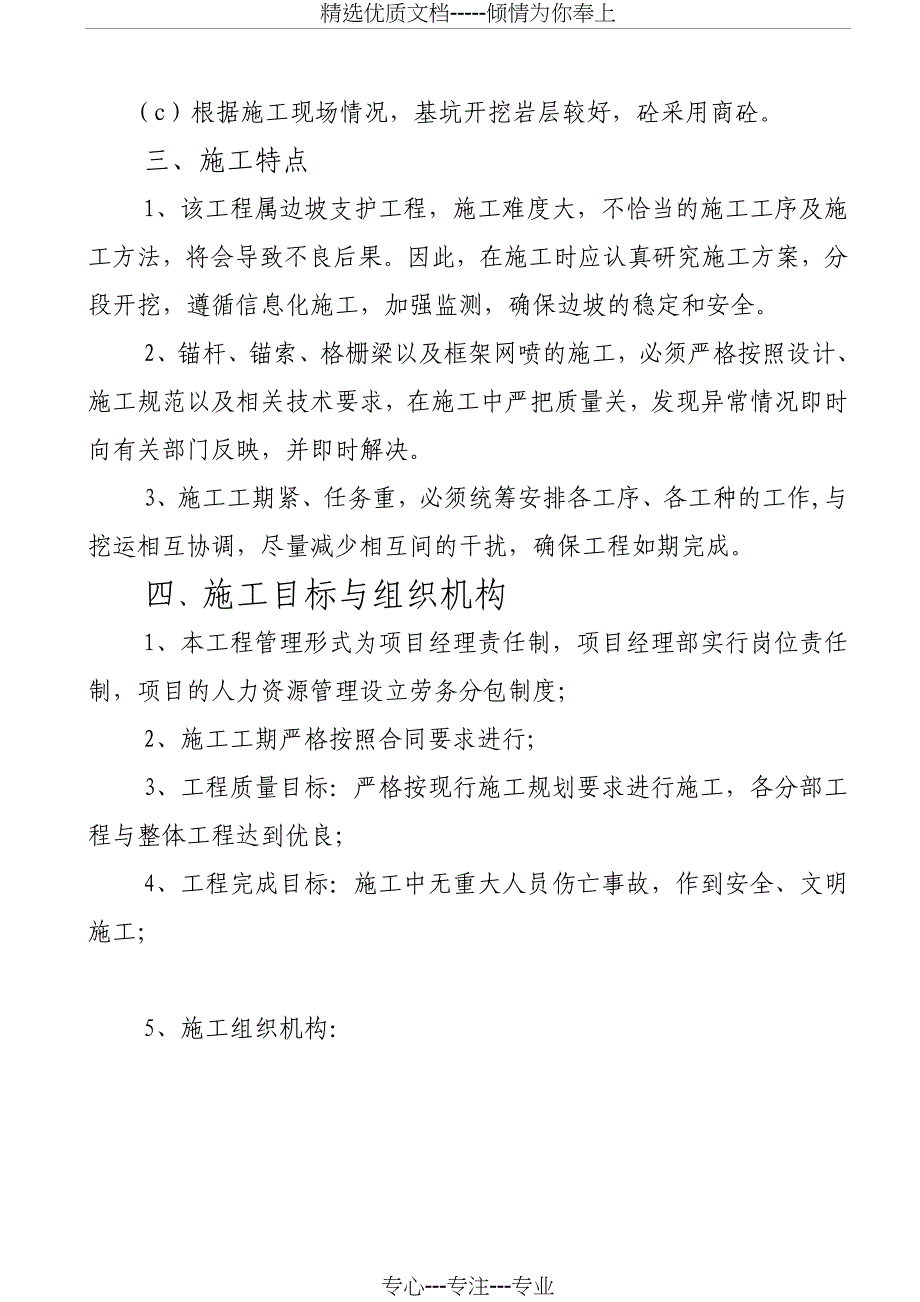 精选优质文档-----倾情为你奉上
（c）根据施工现场情况，基坑开挖岩层较好，砼采用商砼。
三、施工特点
1、该工程属边坡支护工程，施工难度大，不恰当的施工工序及施
工方法，将会导致不良后果。因此，在施工时应认真研究施工方案，分
段开挖，遵循信息化施工，加强监测，确保边坡的稳定和安全。
2、锚杆、锚索、格栅梁以及框架网喷的施工，必须严格按照设计、
施工规范以及相关技术要求，在施工中严把质量关，发现异常情况即时
向有关部门反映，并即时解决。
3、施工工期紧、任务重，必须统筹安排各工序、各工种的工作,与
挖运相互协调，尽量减少相互间的干扰，确保工程如期完成。
四、施工目标与组织机构
1、本工程管理形式为项目经理责任制，项目经理部实行岗位责任
制，项目的人力资源管理设立劳务分包制度；
2、施工工期严格按照合同要求进行；
3、工程质量目标：严格按现行施工规划要求进行施工，各分部工
程与整体工程达到优良；
4、工程完成目标：施工中无重大人员伤亡事故，作到安全、文明
施工；
5、施工组织机构：
专心---专注---专业